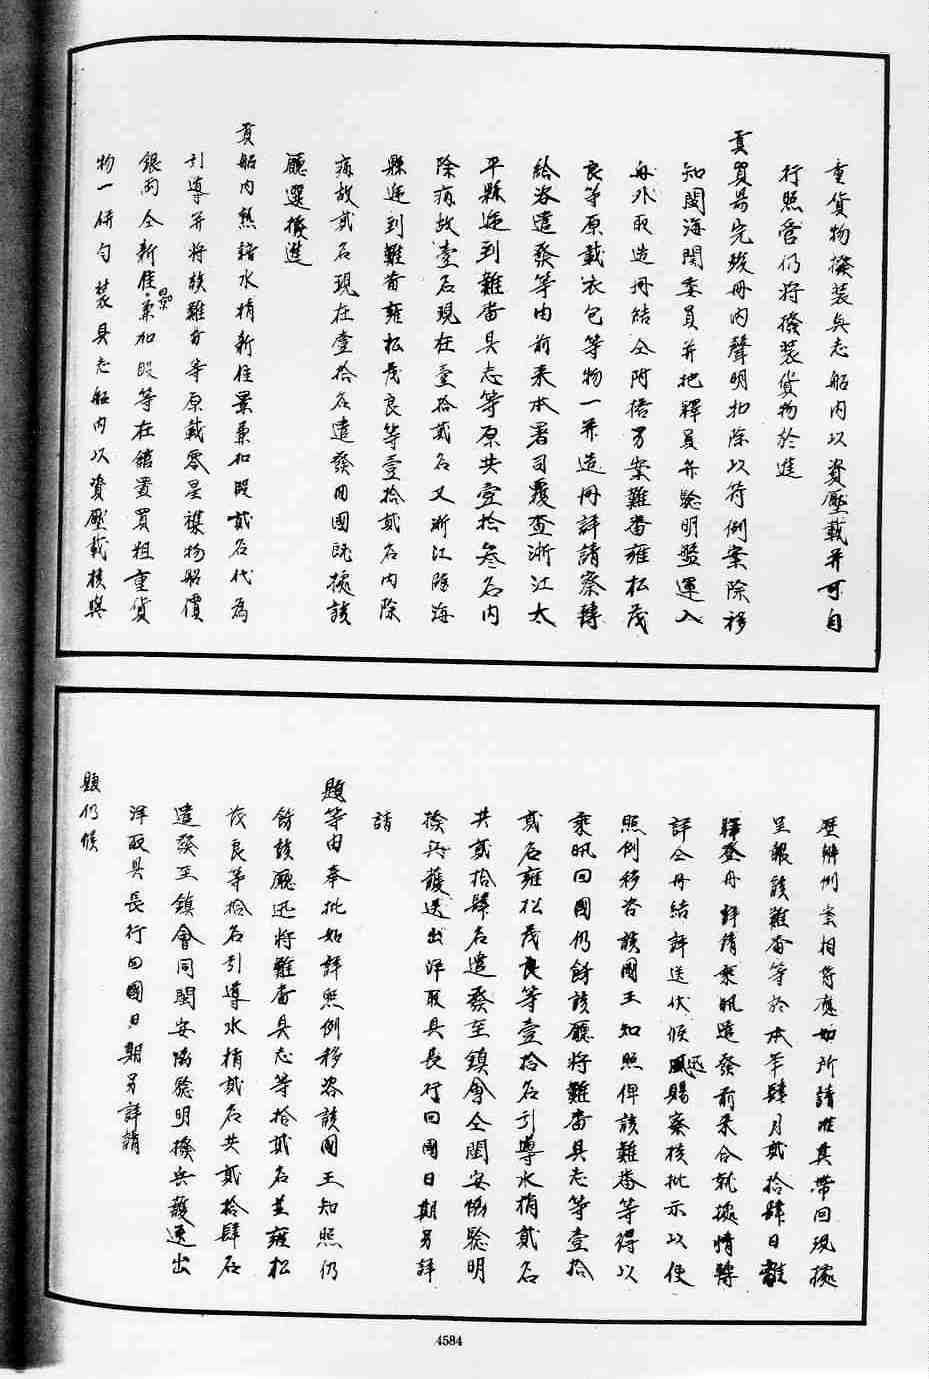 重貨物撥裝兵志船內以資壓載并可自
行照管仍將撥裝貨物於進
貢貿易完竣冊內聲明扣除以符例案除移
知閩海関委員并把釋員弁驗明盤運入
舟外取造冊結仝附搭另案難番雍松茂
良等原載衣包等物一并造冊詳請察轉
給咨遣發等由前來本署司覆查浙江太
平縣送到難番具志等原共壹拾叁名內
除病故壹名現在壹拾貳名又浙江臨海
縣送到難番雍松茂良等壹拾貳名內除
病故貳名現在壹拾名遣發囬國旣據該
廳選撥進
貢船內熟諳水梢新住景兼加叚貳名代為
引導并將該難番等原載零星襍物船價
銀両仝新住景兼加叚等在舘置買粗重貨
物一併勻裝具志船內以資壓載核與
歷辦例案相符應如所請准其帶回現據
呈報該難番等於本年肆月貳拾肆日離
驛登舟詳請乘汛遣發前來合就據情轉
詳仝冊結詳送伏候迅賜察核批示以便
照例移咨該國王知照俾該難番等得以
乘汛囬國仍飭該廳將難番具志等壹拾
貳名雍松茂良等壹拾名引導水梢貳名
共貳拾肆名遣發至鎮會仝閩安協驗明
撥兵護送出洋取具長行囬國日期另詳
請
題等由奉批如詳照例移咨該國王知照仍
飭該廳迅將難番具志等拾貳名並雍松
茂良等拾名引導水梢貳名共貳拾肆名
遣發至鎮會同閩安協驗明撥兵護送出
洋取具長行囬國日期另詳請
題仍候
4584